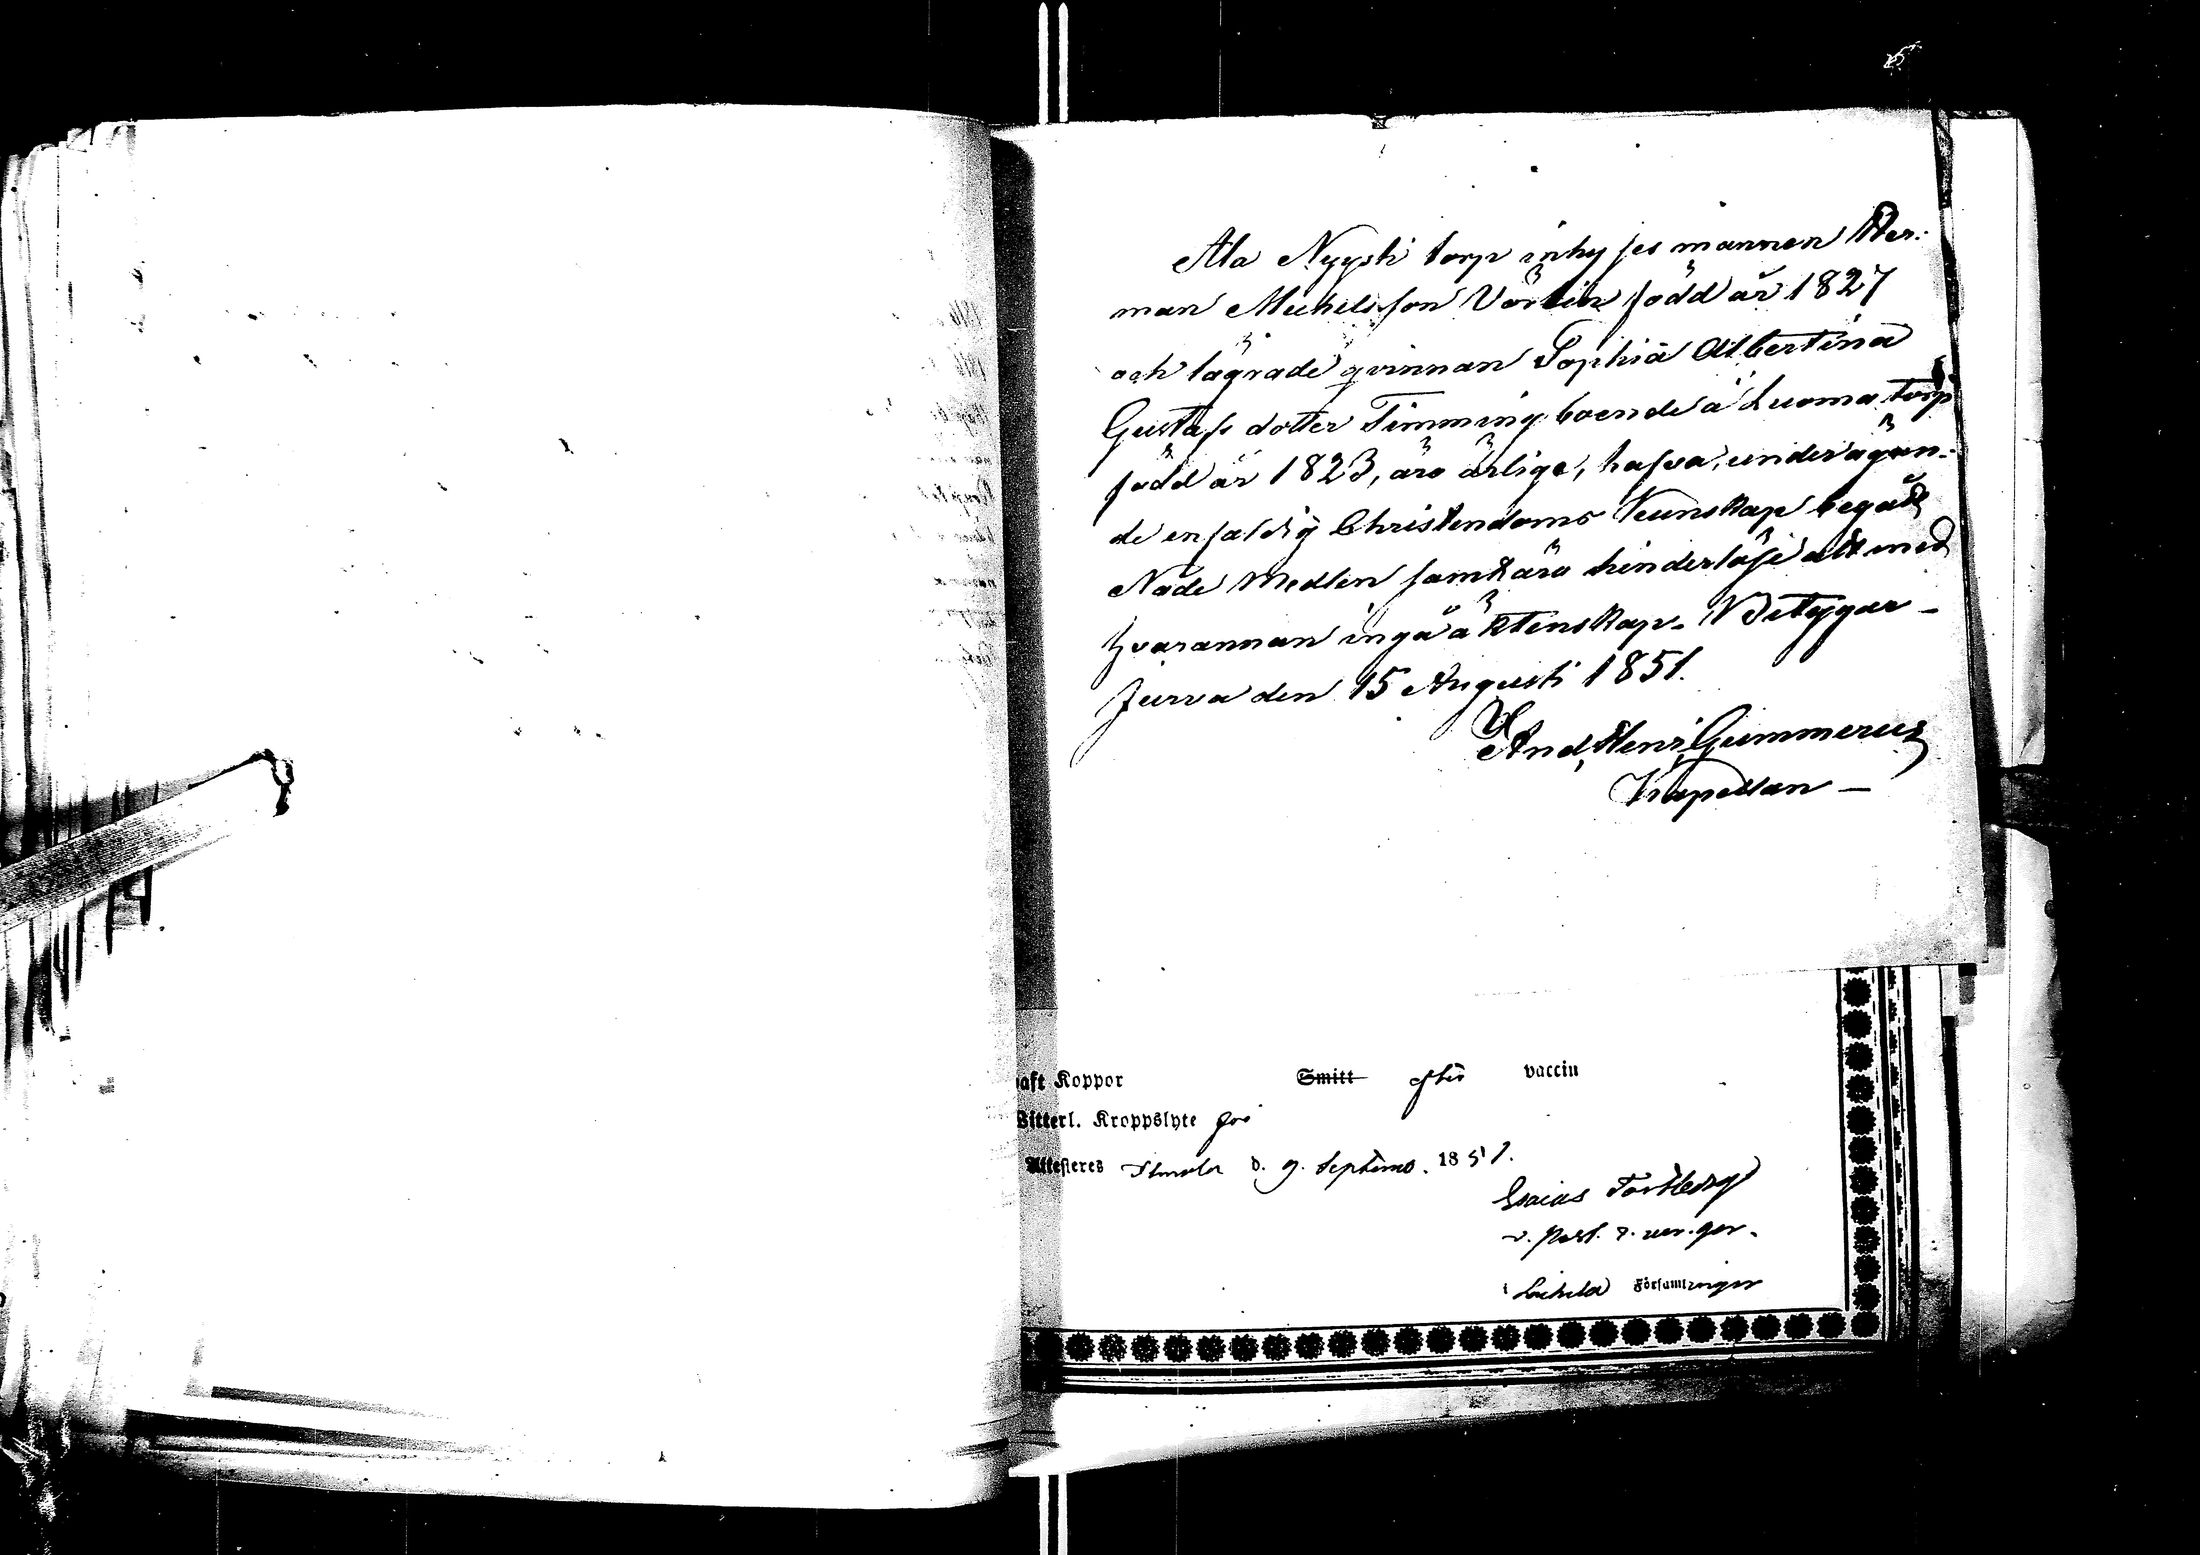 Ala Nyysti torp inhysesmannen Her-
man Michelsson Vörlin född år 1827
och lägrade qvinnan Sophia Albertina
Gustafsdotter Timming boende å Luoma torp
född år 1823, äro ärlige, hafva, undervägan-
de enfaldig Christendoms Kunskap begått
Nåde Medlen samt äro hinderlöse att med
hvarannan ingå äktenskap. Betygar –
Jurva den 15 Augusti 1851.
And. Henr. Gummerus
Kapellan –
haft Koppor Smitt efter vaccin
Witterl. Kroppslyte fri
Attesteres Ilmola d. 9. Septemb. 1851.
Esaias
v. Past.
i Laihela Församlingar